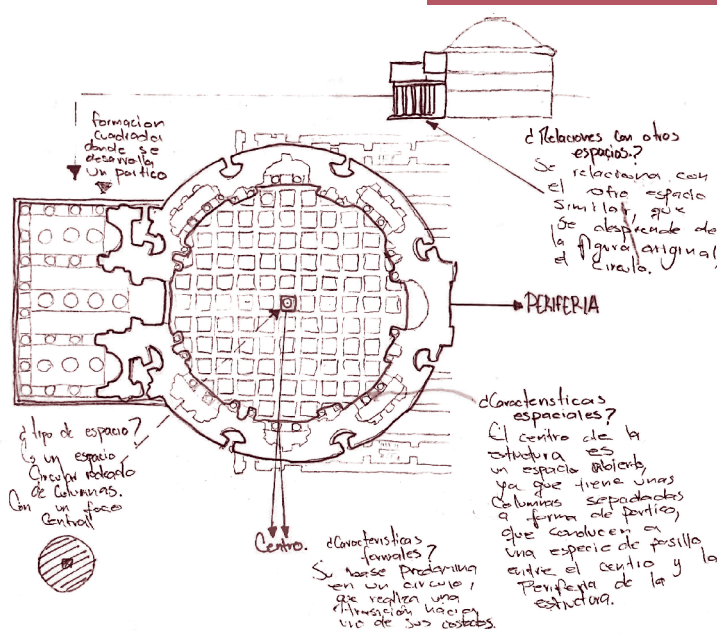 formacion
cuadrada
donde se
desarrolla
un portico
¿Relaciones con otros
espacios?
Se relaciona con
el otro espacio
similar, que
se desprende de
la figura original,
el circulo.
PERIFERIA
¿Tipo de espacio?
Es un espacio
Circular rodeado
de Columnas.
Con un foco
Central
Centro.
¿Caracteristicas
formales?
Su base predomina
en un circulo,
que realiza una
transición hacia
uno de sus costados.
¿Caracteristicas
espaciales?
El centro de la
estructura es
un espacio abierto,
ya que tiene unas
Columnas separadas
a forma de portico,
que conducen a
una especie de pasillo
entre el centro y la
Periferia de la
estructura.